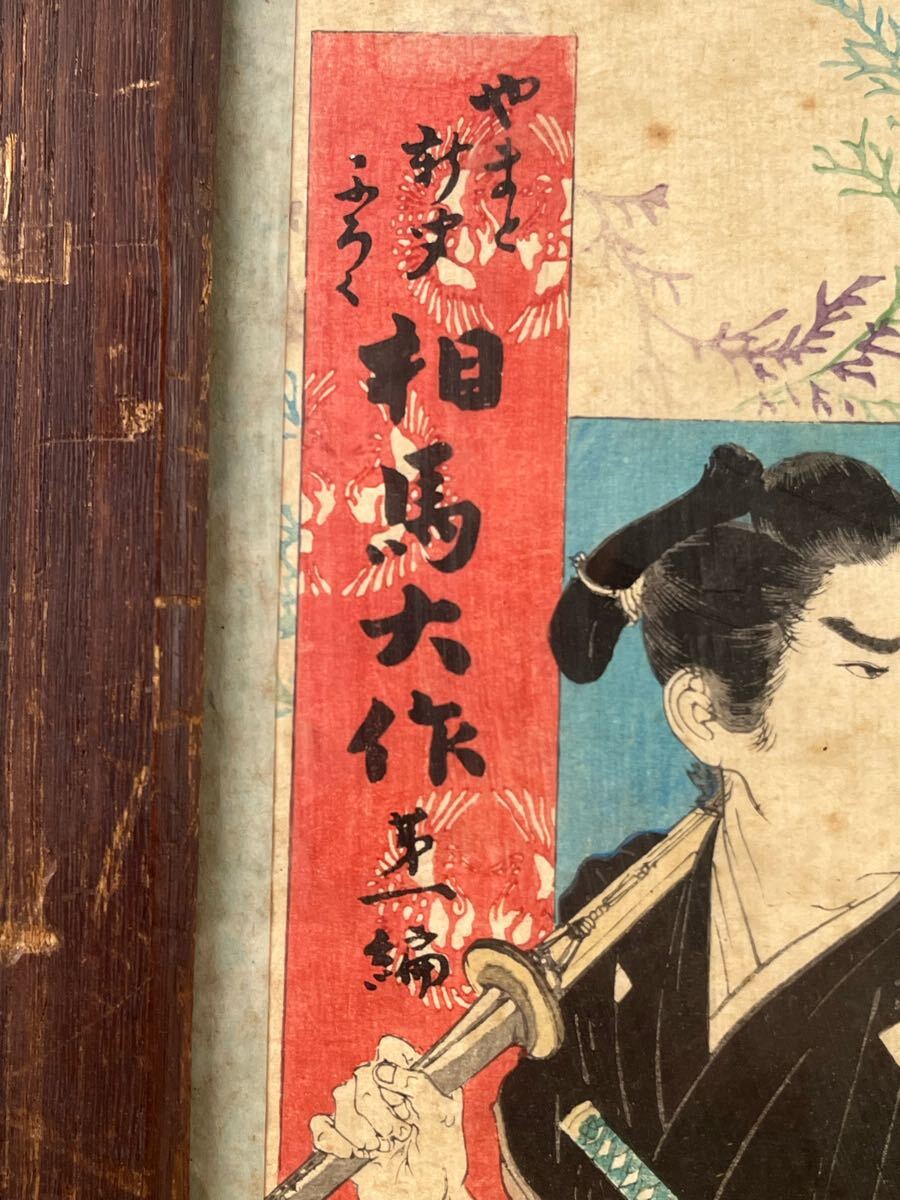 やまと
新史
ふろく
相馬大作
第一編